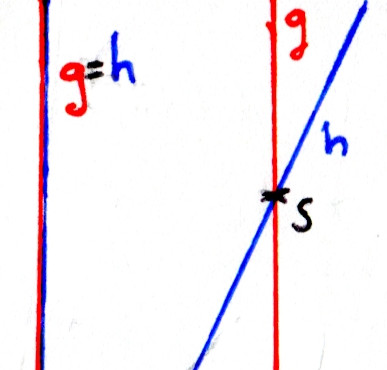 g=h
g
h
S